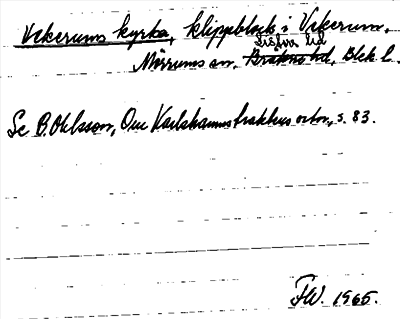 Vekerums kyrka, klippblock i Vekerum,
Listers hd
Mörrums sn, Bräkne hd, Blek. l.
Se B. Ohlsson, Om Karlshamnstraktens ortn., s. 83.
FW. 1965.